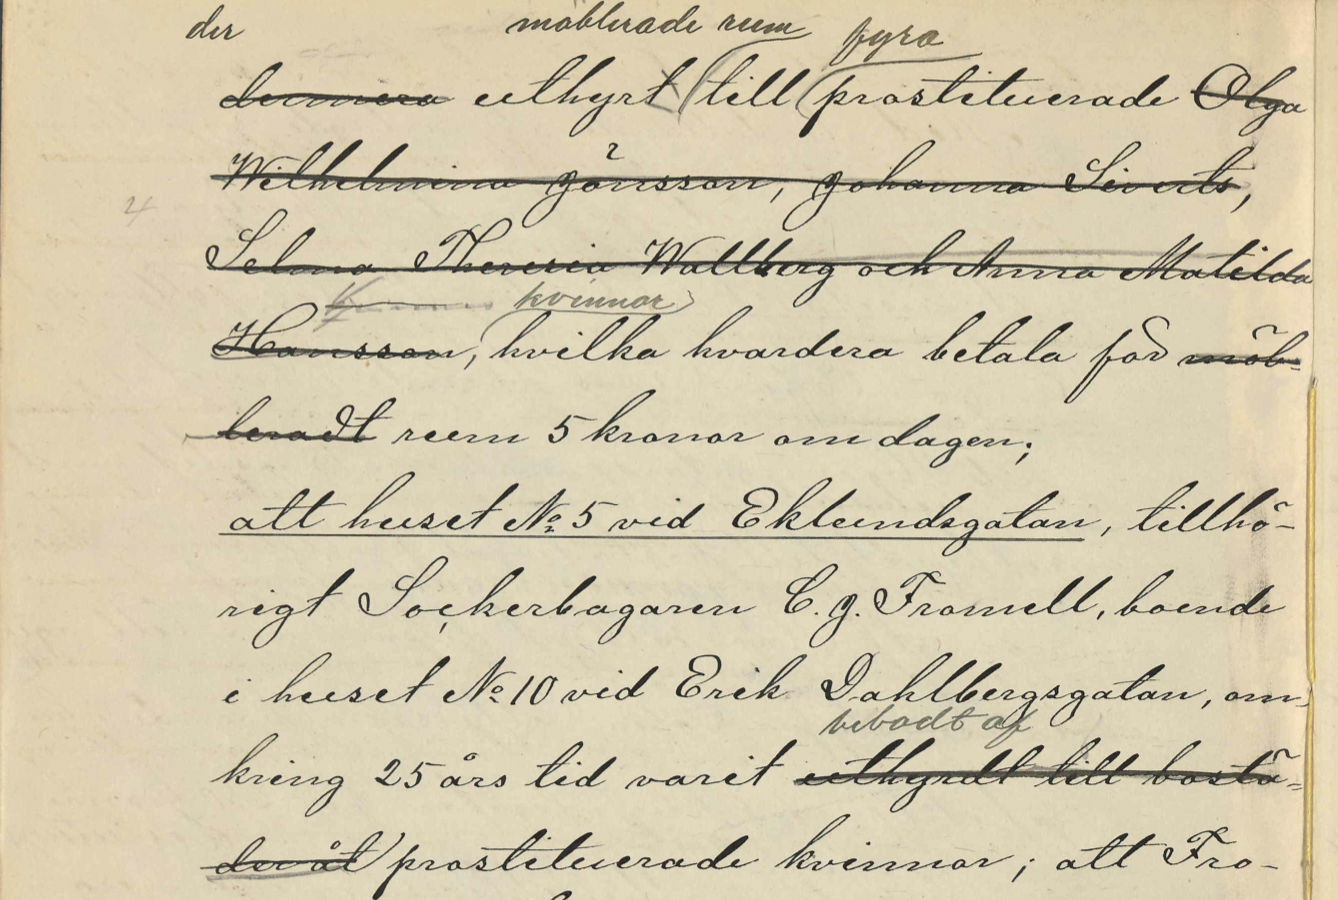 der möblerade rum fyra
uthyrt till prostituerade Olga
Wilhelmina Jönsson, Johanna Siverts,
4
Selma Theresia Wallberg och Anna Matilda
kvinnor
Hansson, hvilka hvardera betala för möb-
leradt rum 5 kronor om dagen;
att huset No 5 vid Eklundsgatan, tillhö-
rigt Sockerbagaren C. J. Fromell, boende
i huset No 10 vid Erik Dahlbergsgatan, om-
bebodt af
kring 25 års tid varit uthyrdt till bostä-
der åt prostituerade kvinnor; att Fro-